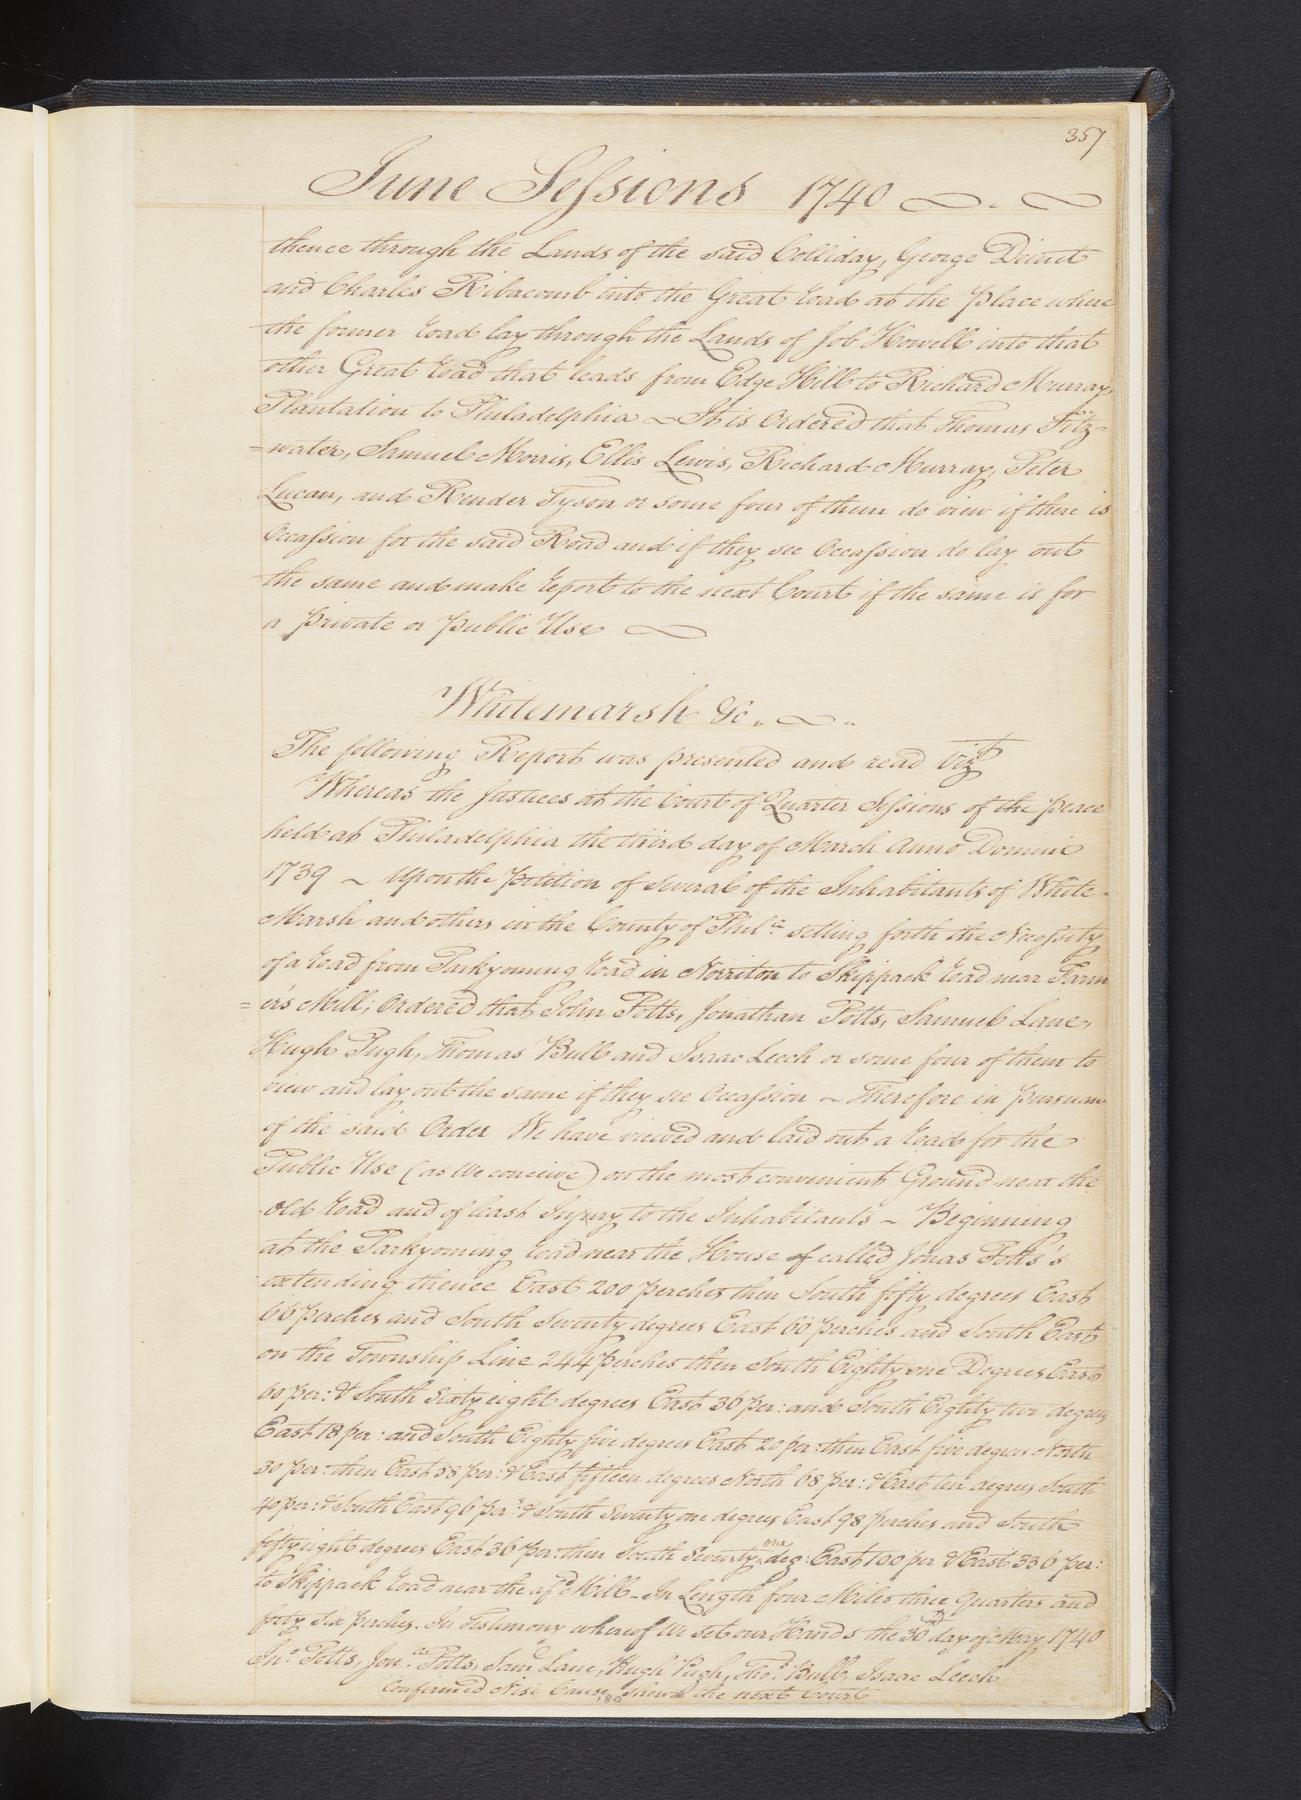 357
June Sessions 1740
thence through the Lands of the said Colliday, George Dirnet
and Charles Ribacomb into the Great Road at the Place where
the former Road lay through the Lands of Job Howell into that
other Great Road that leads from Edge Hill to Richard Murrays
Plantation to Philadelphia ~ It is Ordered that Thomas Fitz-
=water, Samuel Morris, Ellis Lewis, Richard Murray, Peter
Lucan, and Render Tyson or some four of them do view if there is
Occassion for the said Road and if they see Occassion do lay out
the same and make Report to the next Court if the same is for
a Private or Public Use
Whitemarsh &c.
The following Report was presented and read Vizt
Whereas the Justices at the Court of Quarter Sessions of the peace
held at Philadelphia the third day of March Anno Domini
1739 ~ Upon the Petition of several of the Inhabitants of White-
Marsh and others in the County of Phila setting forth the Necessity
of a Road from Parkyoming Road in Norriton to Skippack Road near Farm
=er's Mill; Ordered that John Potts, Jonathan Potts, Samuel Lane,
Hugh Pugh, Thomas Bull and Isaac Leech or some four of them to
view and lay out the same if they see Occassion ~ Therefore in pursuan
of the said Order We have viewed and laid out a Road for the
Public Use (as We conceive) on the most convenient Ground near the
old Road and of least Injury to the Inhabitants ~ Beginning
at the Parkyoming Road near the House of called Jonas Potts's
extending thence East 200 perches then South fifty degrees East
66 perches and South Seventy degrees East 60 perches and South East
on the Township Line 244 perches then South Eighty one Degrees East
60 per: & South Sixty eight degrees East 36 per: and South Eighty two degrees
East 18 per: and South Eighty five degrees East 20 per: then East five degrees North
30 per: then East 58 per: & East fifteen degrees North 68 per: & East ten degrees South
40 per: & South East 96 per: & South Seventy one degrees East 98 perches and South
fifty eight degrees East 36 per: then South Seventy one deg: East 100 per & East 336 per:
to Skippack Road near the afd Mill - In Length four Miles three Quarters and
forty six perches. In Testimony whereof We set our Hands the 30th day of May 1740
Jno Potts, Jonan Potts, Saml Lane, Hugh Pugh, Thos Bull, Isaac Leech
Confirmed Nisi Cause shewn the next Court
180